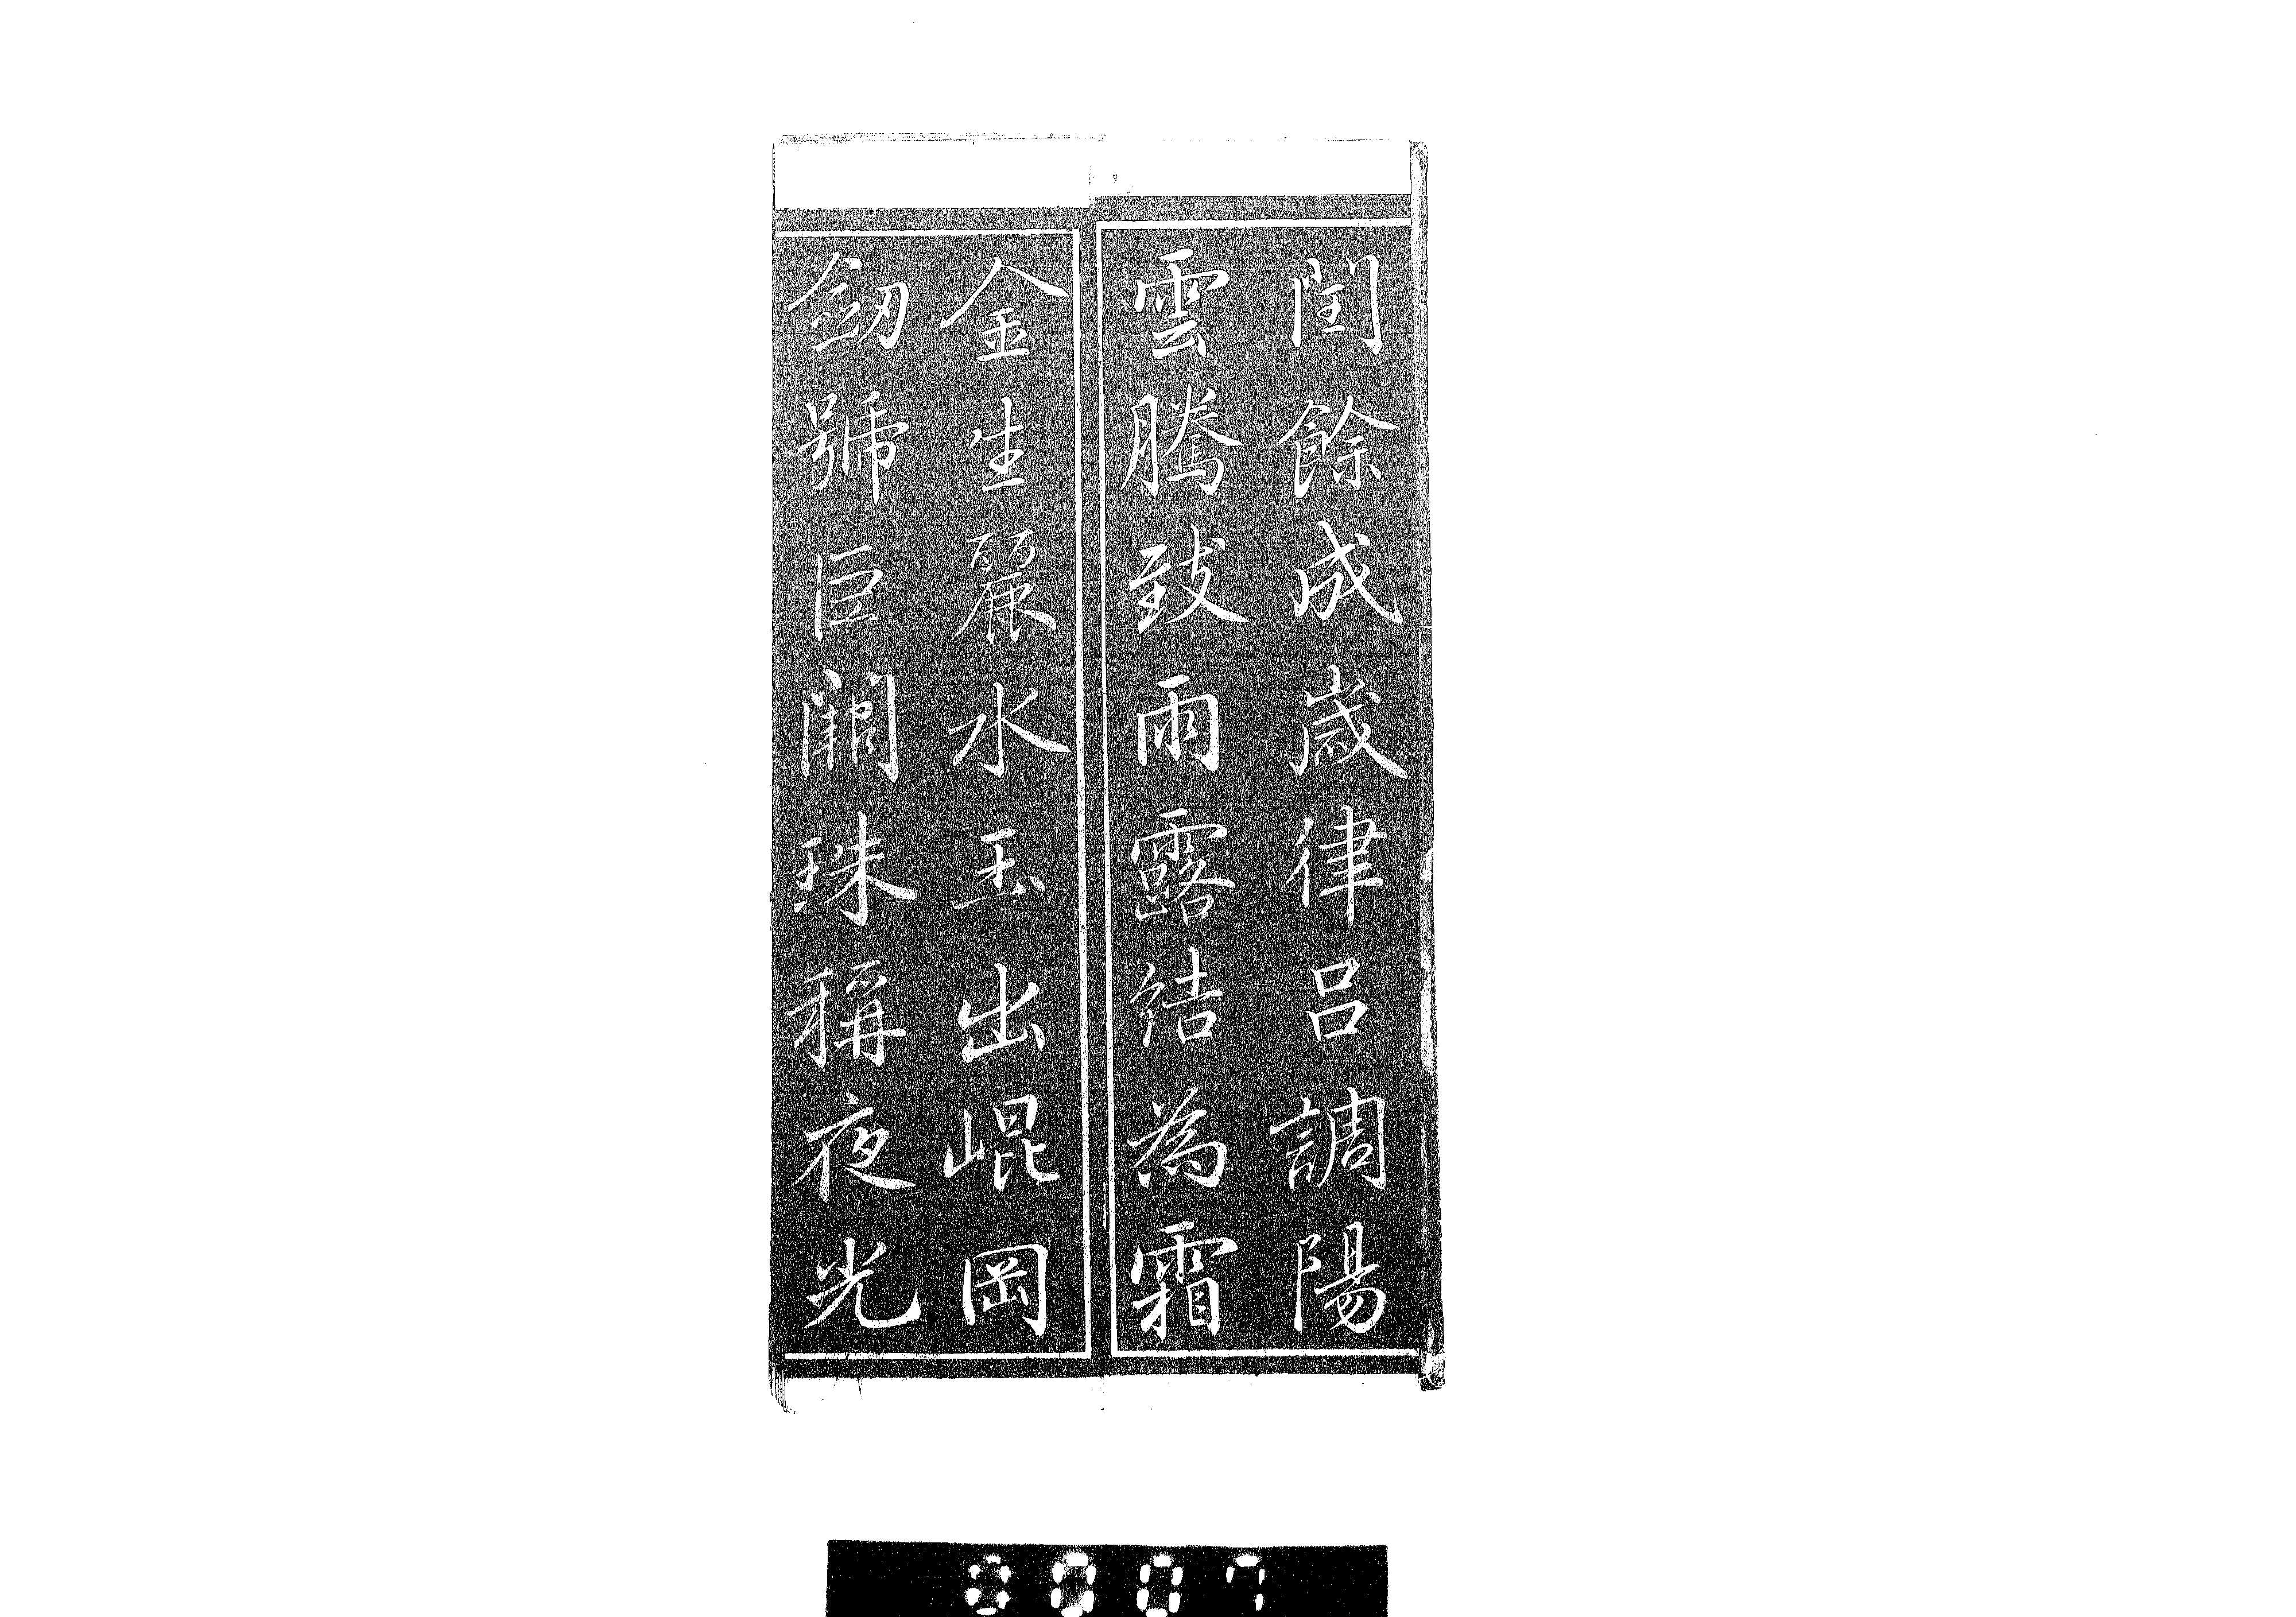 閏餘成歲律呂調陽
雲騰致雨露結為霜
金生麗水玉出崐岡
劒號巨闕珠稱夜光
0007